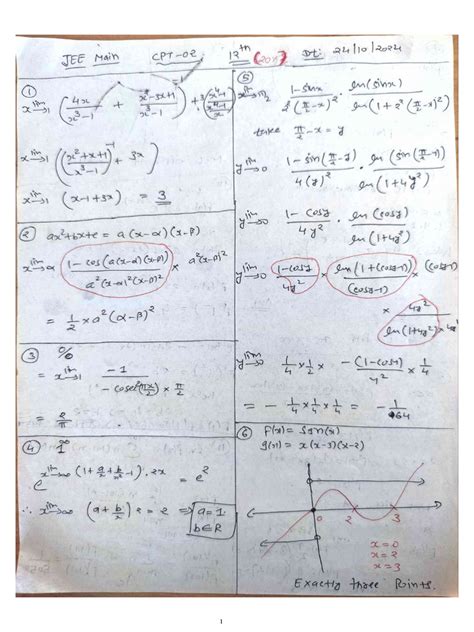 JEE Main CPT-02 12th (2025) Dt: 24/10/2024
①
lim x→1 (4x/(x³-1) + (x²-3x+1)/(x³-1))
lim x→1 ((x²+x+1)/(x³-1) + 3x)
lim x→1 (x-1+3x) = 3
② ax²+bx+c = a(x-α)(x-β)
lim x→α (1-cos(a(x-α)(x-β)))/(a²(x-α)²(x-β)²) × a²(x-β)²
= 1/2 × a²(α-β)²
③ 0/0
= lim x→1 -1/(-cosec²(πx/2) × π/2)
= 2/π
④ 1^∞
e^(lim x→∞ (1+a/x+b/x²-1)·2x) = e²
∴ lim x→∞ (a+b/x) 2 = 2 ⇒ a=1
b∈R
⑤
lim x→π/2 (1-sinx)/(2(π/2-x)²) · ln(sinx)/ln(1+2²(π/2-x)²)
take π/2-x = y
lim y→0 (1-sin(π/2-y))/(4(y)²) · ln(sin(π/2-y))/ln(1+4y²)
lim y→0 (1-cosy)/(4y²) · ln(cosy)/ln(1+4y²)
lim y→0 (1-cosy)/(4y²) × ln(1+(cosy-1))/(cosy-1) × (cosy-1)
× 4y²/(ln(1+4y²)×4y²)
lim y→0 1/4 × 1/2 × -(1-cosy)/y² × 1/4
= - 1/4 × 1/4 × 1/4 = -1/64
⑥ f(x) = Sgn(x)
g(x) = x(x-3)(x-2)
0 2 3
x=0
x=2
x=3
Exactly three Points.
1